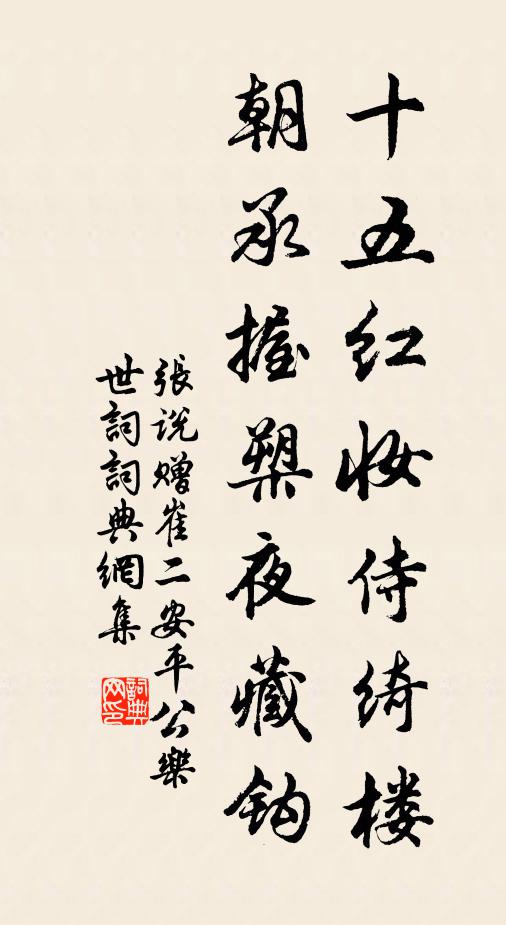 十五红妆侍绮楼
朝承握槊夜藏钩
張说赠崔二安平公樂
世詞詞典網集
詞典网印